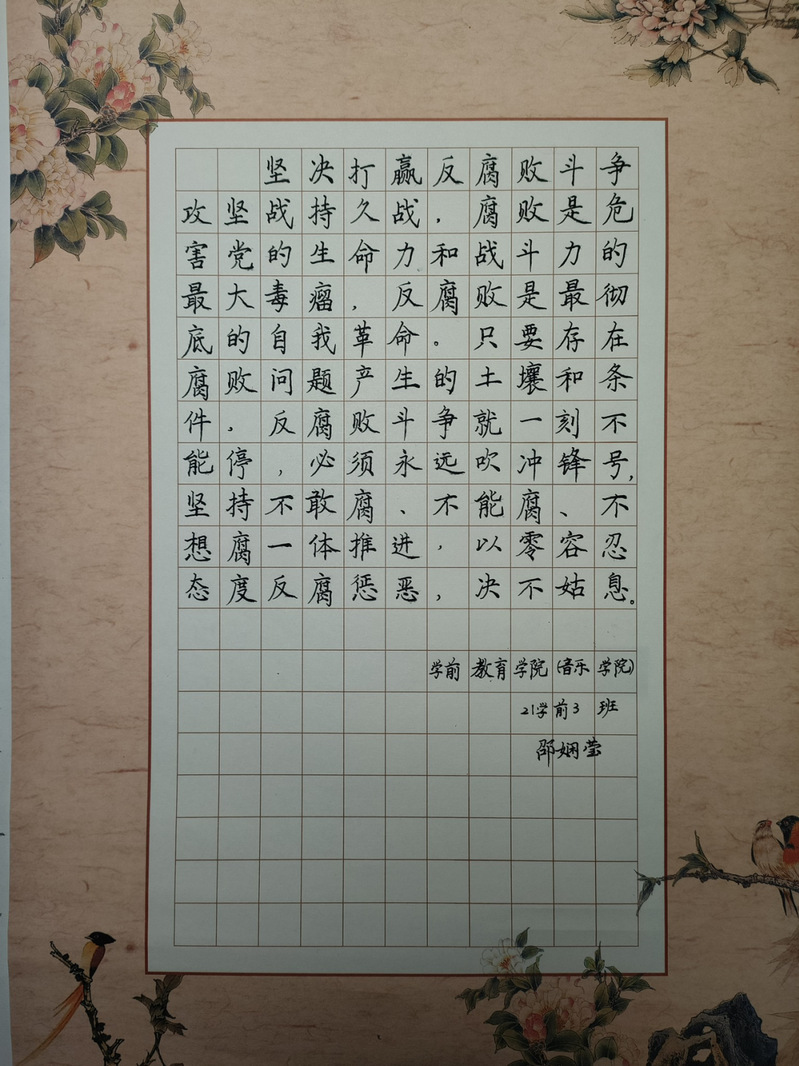 坚决打赢反腐败斗争
攻坚战持久战，腐败是危
害党的生命力和战斗力的
最大毒瘤，反腐败是最彻
底的自我革命。只要存在
腐败问题产生的土壤和条
件，反腐败斗争就一刻不
能停，必须永远吹冲锋号，
坚持不敢腐、不能腐、不
想腐一体推进，以零容忍
态度反腐惩恶，决不姑息。
学前教育学院(音乐学院)
21学前3班
邵娴莹